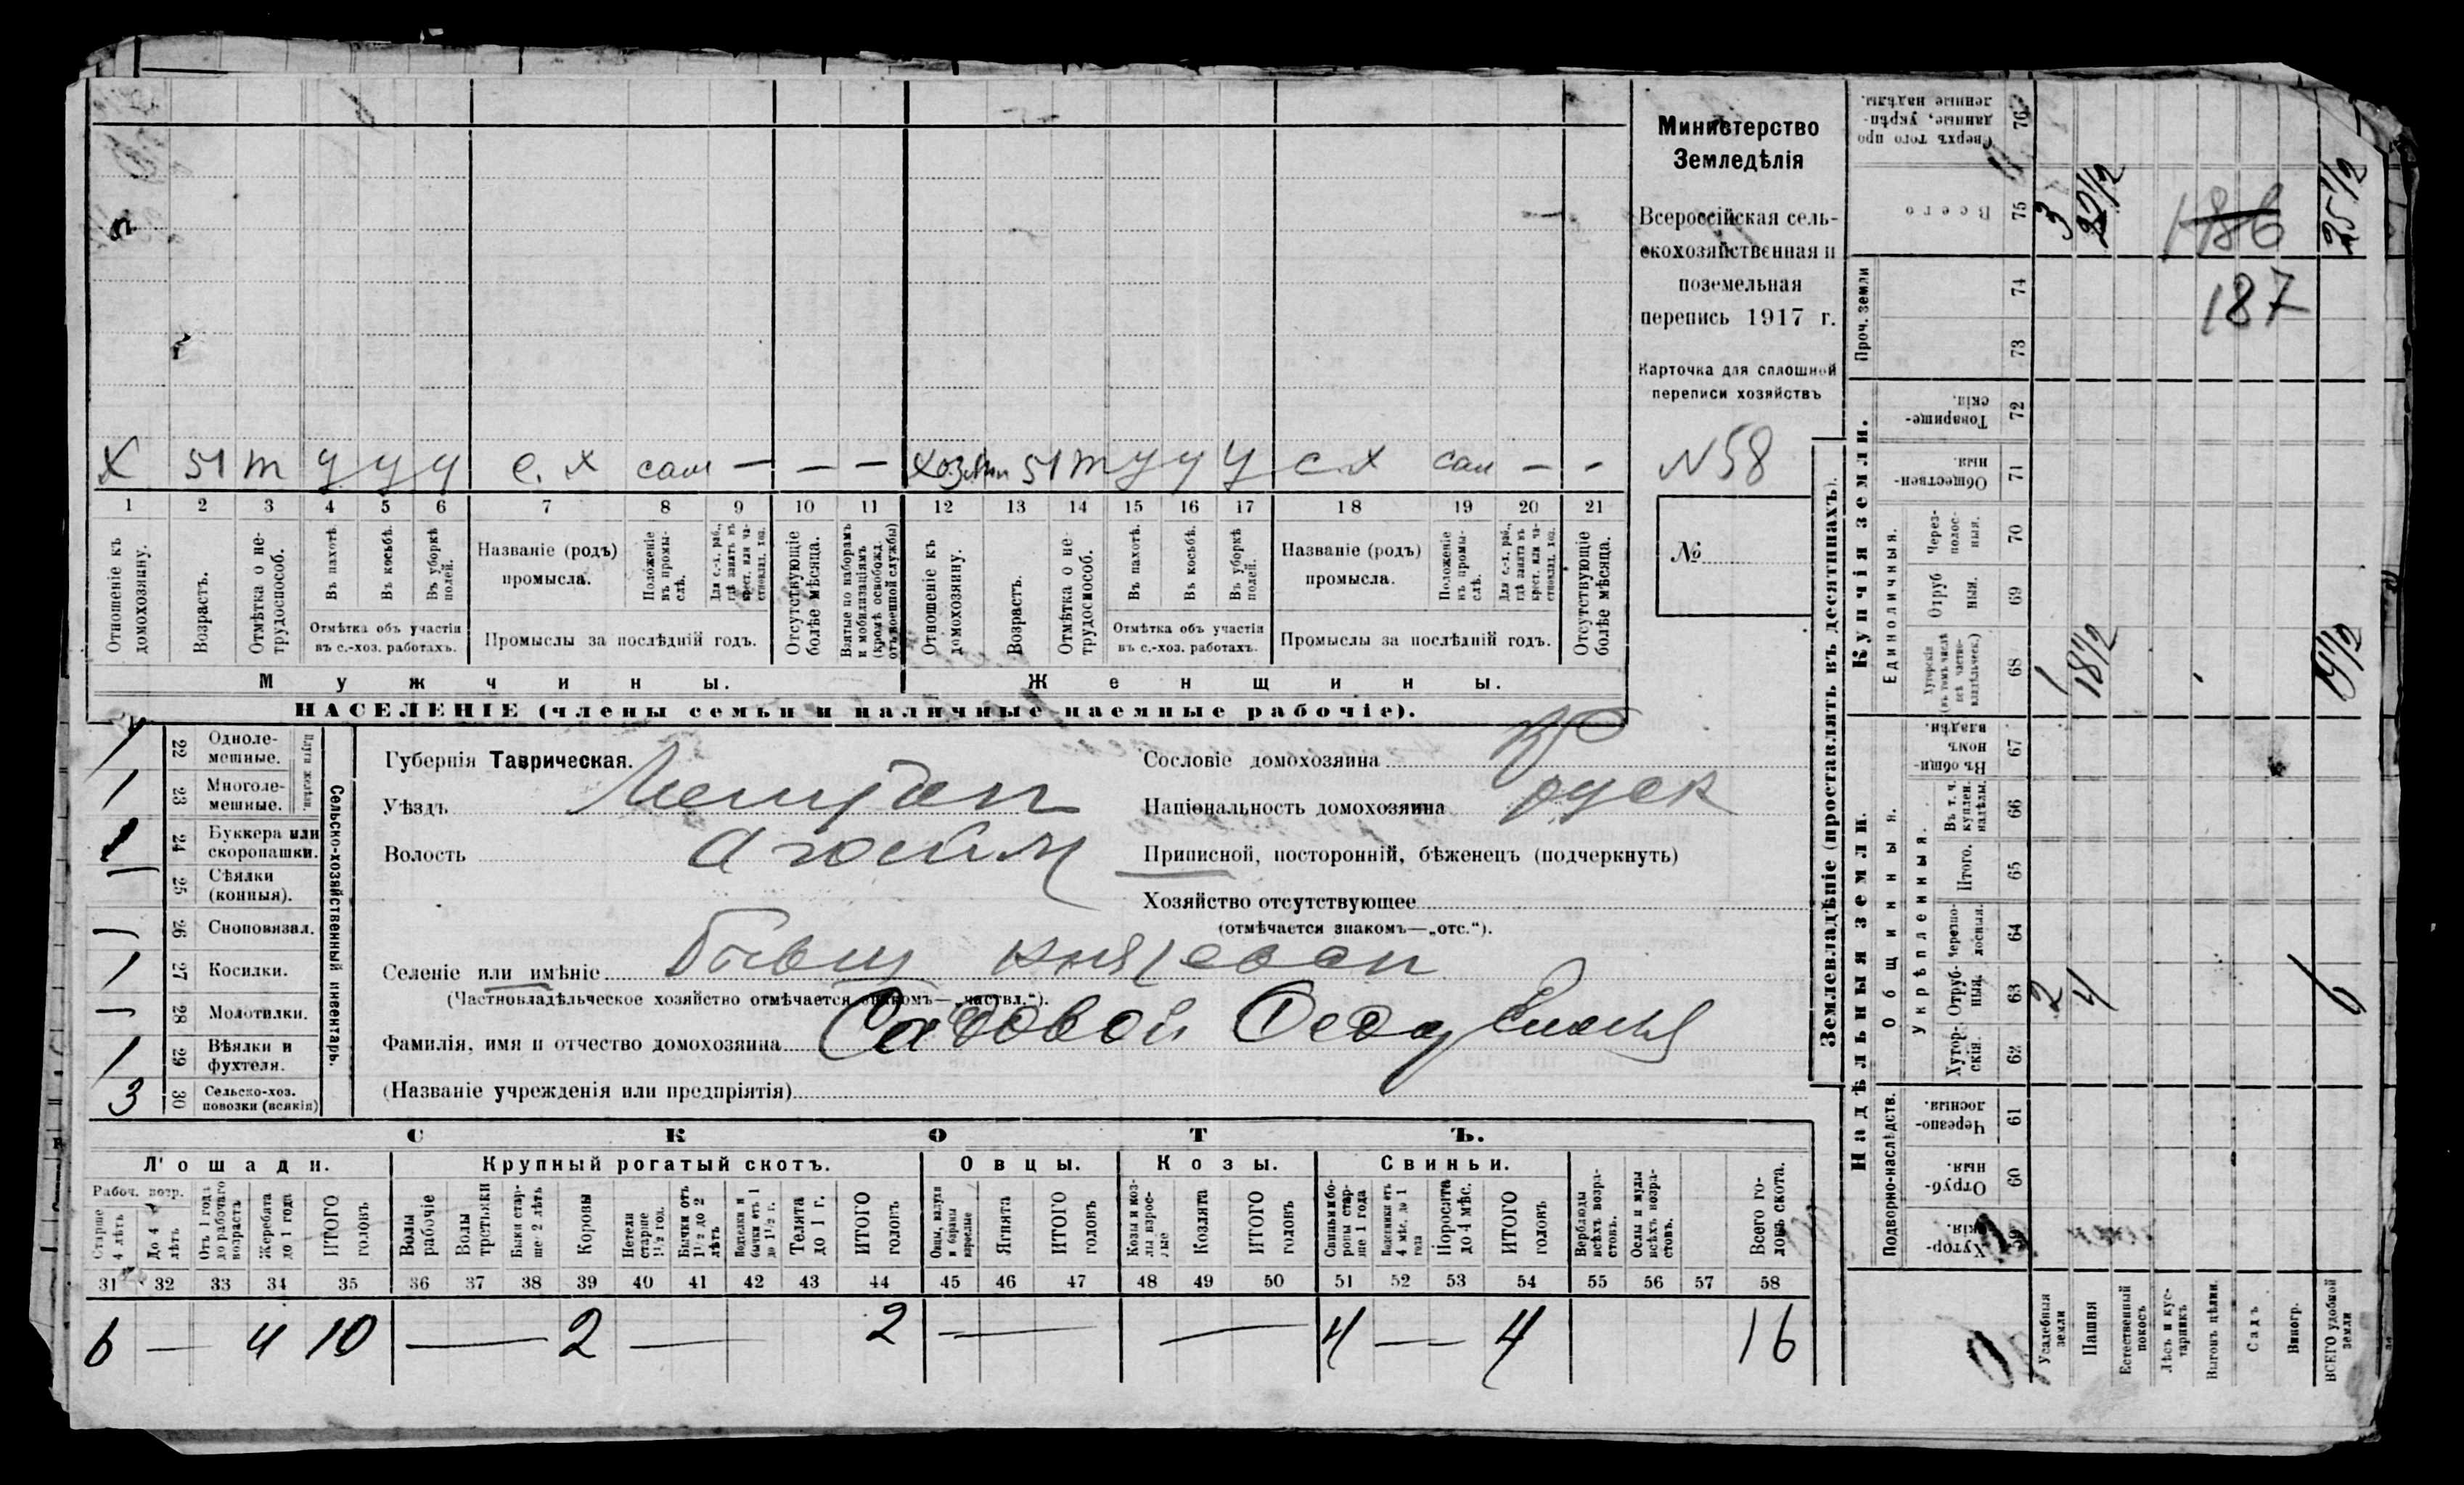 Министерство
Земледѣлія
Всероссійская сель-
скохозяйственная и
поземельная
перепись 1917 г.
Карточка для сплошной
переписи хозяйствъ
N 58
№
Х 51 т у у у с. х сам — — —
хозяйк 51 т у у у с.х сам — -
1 2 3 4 5 6 7 8 9 10 11 12 13 14 15 16 17 18 19 20 21
Отношеніе къ домохозяину.
Возрастъ.
Отмѣтка о не-трудоспособ.
Въ пахотѣ.
Въ косьбѣ.
Въ уборкѣ полей.
Отмѣтка объ участіи
въ с.-хоз. работахъ.
Названіе (родъ)
промысла.
Положеніе въ промы-слѣ.
Для с.-х. раб., гдѣ занятъ въ крест. или ча-стновлад. хоз.
Промыслы за послѣдній годъ.
Отсутствующіе болѣе мѣсяца.
Взятые по наборамъ и мобилизаціямъ (кромѣ освобожд. отъ военной службы)
Отношеніе къ домохозяину.
Возрастъ.
Отмѣтка о не-трудоспособ.
Въ пахотѣ.
Въ косьбѣ.
Въ уборкѣ полей.
Отмѣтка объ участіи
въ с.-хоз. работахъ.
Названіе (родъ)
промысла.
Положеніе въ промы-слѣ.
Для с.-х. раб., гдѣ занята въ крест. или ча-стновлад. хоз.
Промыслы за послѣдній годъ.
Отсутствующіе болѣе мѣсяца.
Мужчины.
Женщины.
НАСЕЛЕНІЕ (члены семьи и наличные наемные рабочіе).
Сельско-хозяйственный инвентарь.
Плуги желѣзн.
1 22 Одноле-мешные.
1 23 Многоле-мешные.
1 24 Буккера или скоропашки.
1 25 Сѣялки (конныя).
1 26 Сноповязал.
1 27 Косилки.
1 28 Молотилки.
1 29 Вѣялки и фухтели.
3 30 Сельско-хоз. повозки (всякія)
Губернія Таврическая.
Уѣздъ Мелитоп
Волость
Селеніе или имѣніе
(Частновладѣльческое хозяйство отмѣчается знакомъ—„частвл.“).
Фамилія, имя и отчество домохозяина Садовой
(Названіе учрежденія или предпріятія)
Сословіе домохозяина
Національность домохозяина руск
Приписной, посторонній, бѣженецъ (подчеркнуть)
Хозяйство отсутствующее
(отмѣчается знакомъ—„отс.“).
СКОТЪ.
Лошади.
Рабоч. возр.
Старше 4 лѣтъ
До 4 лѣтъ
Отъ 1 года до рабочаго возраста
Жеребята до 1 года
ИТОГО головъ
Крупный рогатый скотъ.
Волы рабочіе
Волы третьяки
Быки стар-ше 2 лѣтъ
Коровы
Нетели старше 1½ год.
Бычки отъ 1½ до 2 лѣтъ
Подтелки и бычки отъ 1 до 1½ г.
Телята до 1 г.
ИТОГО головъ
Овцы.
Овцы, валухи и бараны взрослые
Ягнята
ИТОГО головъ
Козы.
Козы и коз-лы взрос-лые
Козлята
ИТОГО головъ
Свиньи.
Свиньи и бо-ровы стар-ше 1 года
Подсвинки отъ 4 мѣс. до 1 года
Поросята до 4 мѣс.
ИТОГО головъ
Верблюды всѣхъ возра-стовъ.
Ослы и мулы всѣхъ возра-стовъ.
Всего го-ловъ скота.
31 32 33 34 35 36 37 38 39 40 41 42 43 44 45 46 47 48 49 50 51 52 53 54 55 56 57 58
6 — 4 10 — 2 — 2 — — 4 — 4 16
Землевладѣніе (проставлять въ десятинахъ).
Надѣльныя земли.
Подворно-наслѣдств.
Хутор-скія. 59
Отруб-ныя. 60
Черезпо-лосныя. 61
Общинныя.
Укрѣпленныя.
Хутор-скія. 62
Отруб-ныя. 63 2 4 6
Черезпо-лосныя. 64
Итого. 65
Въ т. ч. куплен. надѣлы. 66
Въ общи-номъ владѣн. 67
Купчія земли.
Единоличныя.
Хуторскія (въ томъ числѣ всѣ частно-владѣльческ.) 68 1 18 1/2 19 1/2
Отруб ныя. 69
Через-полос-ныя. 70
Обществен-ныя. 71
Товарище-скія. 72
Проч. земли
73 74
Всего 75 3 22 1/2 25 1/2
Сверхъ того про данные, укрѣп-ленные надѣлы. 76
186
187
Усадебныя земли
Пашня
Естественный покосъ
Лѣсъ и кус-тарникъ
Выгонъ цѣлин.
Садъ
Виногр.
ВСЕГО удобной земли